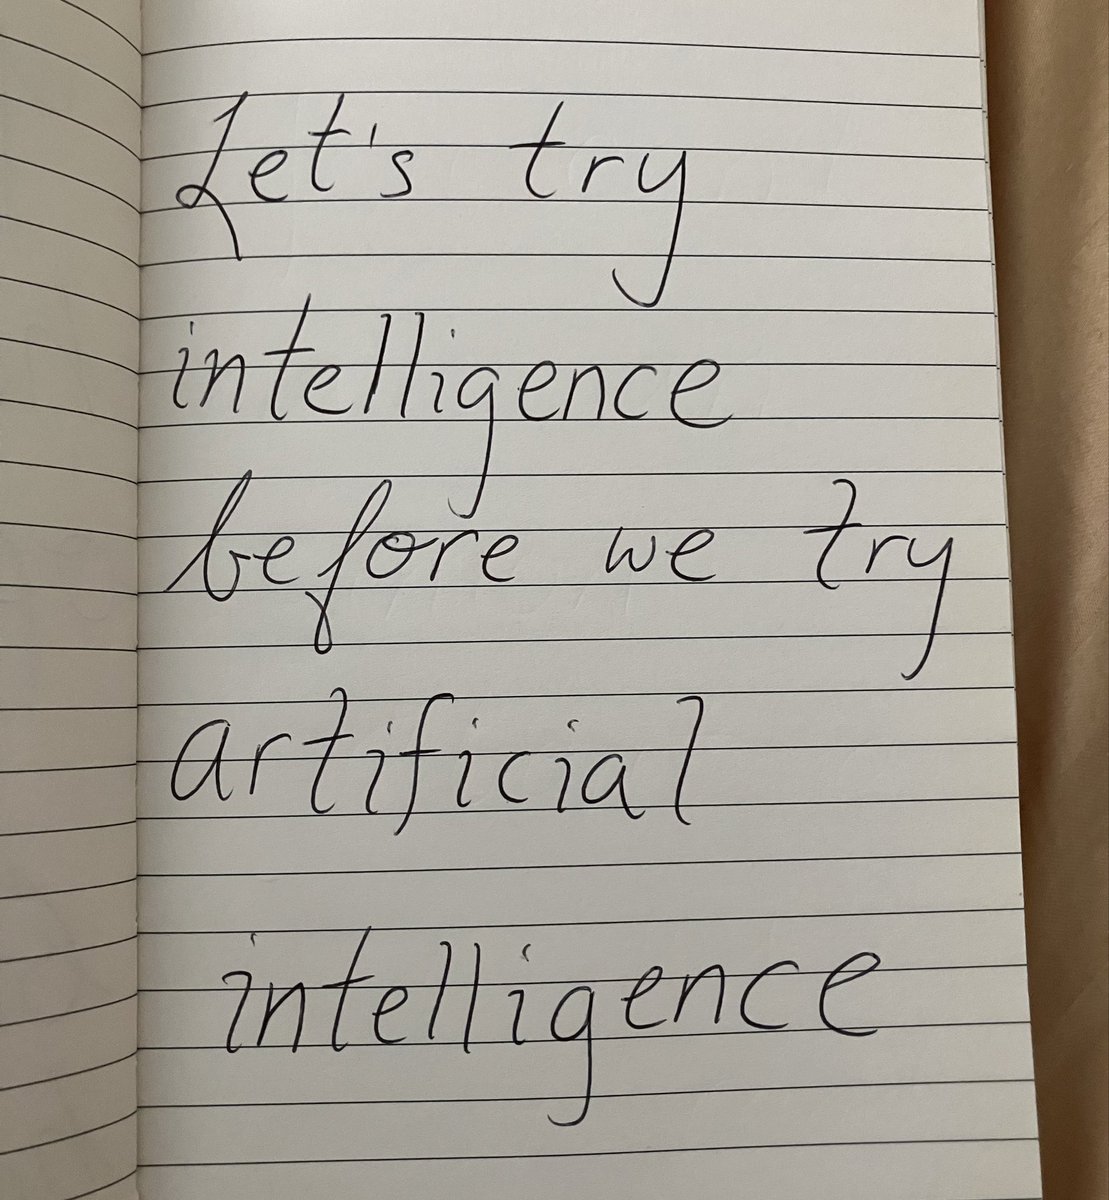 Let's try
intelligence
before we try
artificial
intelligence